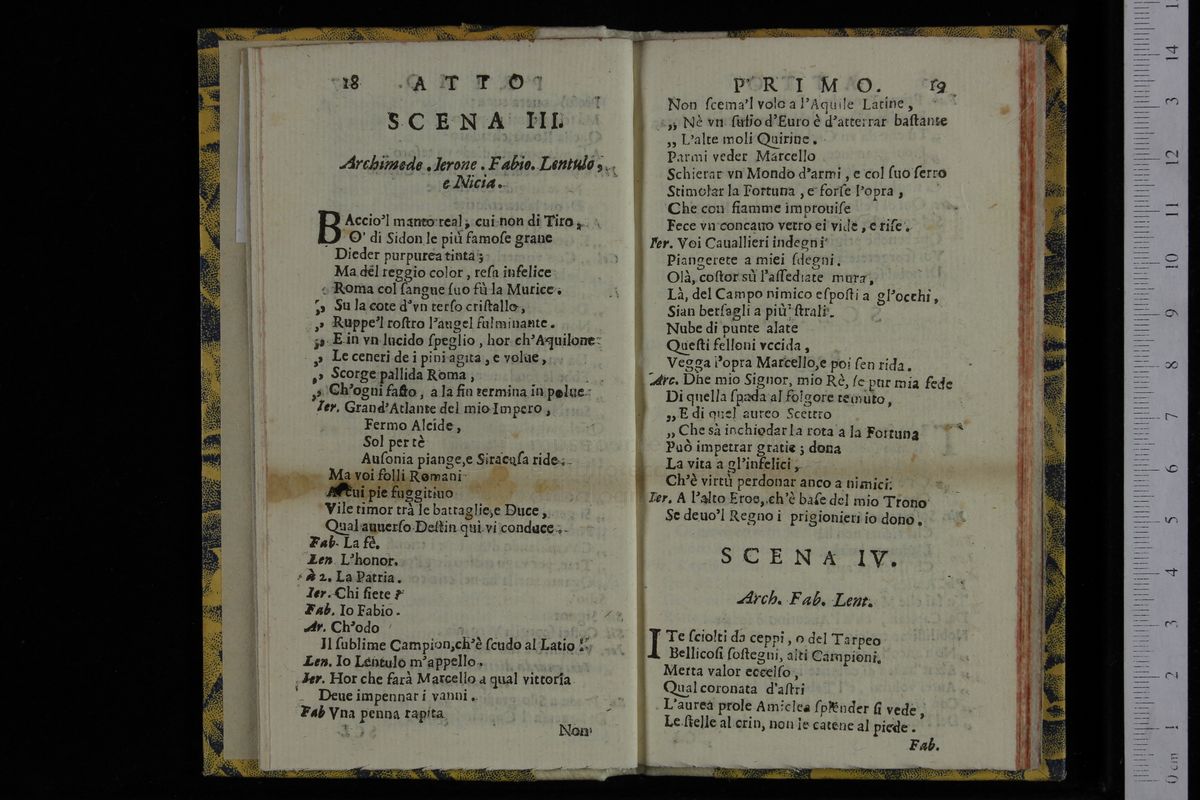 18 ATTO
SCENA III.
Archimede. Ierone. Fabio. Lentulo,
e Nicia.
BAccio'l manto real, cui non di Tiro,
O' di Sidon le più famoſe grane
Dieder purpurea tinta;
Ma del reggio color, reſa infelice
Roma col ſangue ſuo fù la Murice.
,, Su la cote d'vn terſo criſtallo,
,, Ruppe'l roſtro l'augel fulminante.
,, E in vn lucido ſpeglio, hor ch'Aquilone
,, Le ceneri de i pini agita, e volue,
,, Scorge pallida Roma,
,, Ch'ogni faſto, a la fin termina in polue
Ier. Grand'Atlante del mio Impero,
Fermo Alcide,
Sol per tè
Auſonia piange,e Siracuſa ride.
Ma voi folli Romani
A cui pie fuggitiuo
Vile timor trà le battaglie,e Duce,
Qual auuerſo Deſtin qui vi conduce.
Fab. La fè.
Len. L'honor.
à 2. La Patria.
Ier. Chi ſiete?
Fab. Io Fabio.
Ar. Ch'odo
Il ſublime Campion,ch'è ſcudo al Latio!
Len. Io Lentulo m'appello.
Ier. Hor che farà Marcello a qual vittoria
Deue impennar i vanni.
Fab Vna penna rapita
Non
PRIMO. 19
Non ſcema'l volo a l'Aquile Latine,
,, Nè vn ſuſio d'Euro è d'atterrar baſtante
,, L'alte moli Quirine.
Parmi veder Marcello
Schierar vn Mondo d'armi, e col ſuo ferro
Stimolar la Fortuna, e forſe l'opra,
Che con fiamme improuiſe
Fece vn concauo vetro ei vide, e riſe.
Ier. Voi Cauallieri indegni
Piangerete a miei ſdegni.
Olà, coſtor sù l'aſſediate mura,
Là, del Campo nimico eſpoſti a gl'occhi,
Sian berſagli a più ſtrali.
Nube di punte alate
Queſti felloni vccida,
Vegga l'opra Marcello,e poi ſen rida.
Arc. Dhe mio Signor, mio Rè, ſe pur mia fede
Di quella ſpada al folgore temuto,
,, E di quel aureo Scettro
,, Che sà inchiodar la rota a la Fortuna
Può impetrar gratie; dona
La vita a gl'infelici,
Ch'è virtù perdonar anco a nimici.
Ier. A l'alto Eroe, ch'è baſe del mio Trono
Se deuo'l Regno i prigionieri io dono.
SCENA IV.
Arch. Fab. Lent.
ITe ſciolti da ceppi, o del Tarpeo
Bellicoſi ſoſtegni, alti Campioni.
Merta valor eccelſo,
Qual coronata d'aſtri
L'aurea prole Amiclea ſplender ſi vede,
Le ſtelle al crin, non le catene al piede.
Fab.